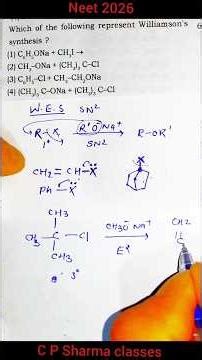 Neet 2026
Which of the following represent Williamson's
synthesis ?
(1) C₆H₅ONa + CH₃I →
(2) CH₃-ONa + (CH₃)₃ C-Cl
(3) C₆H₅-Cl + CH₃-CH₂ONa
(4) (CH₃)₃ C-ONa + (CH₃)₃ C-Cl
W.E.S SN²
R-X R'O⁻Na⁺ R-OR'
1° SN²
CH₂ = CH-X X
Ph-X
CH3
CH₃ C Cl CH3O⁻ Na⁺ CH2
CH3 E² C
3°
C P Sharma classes